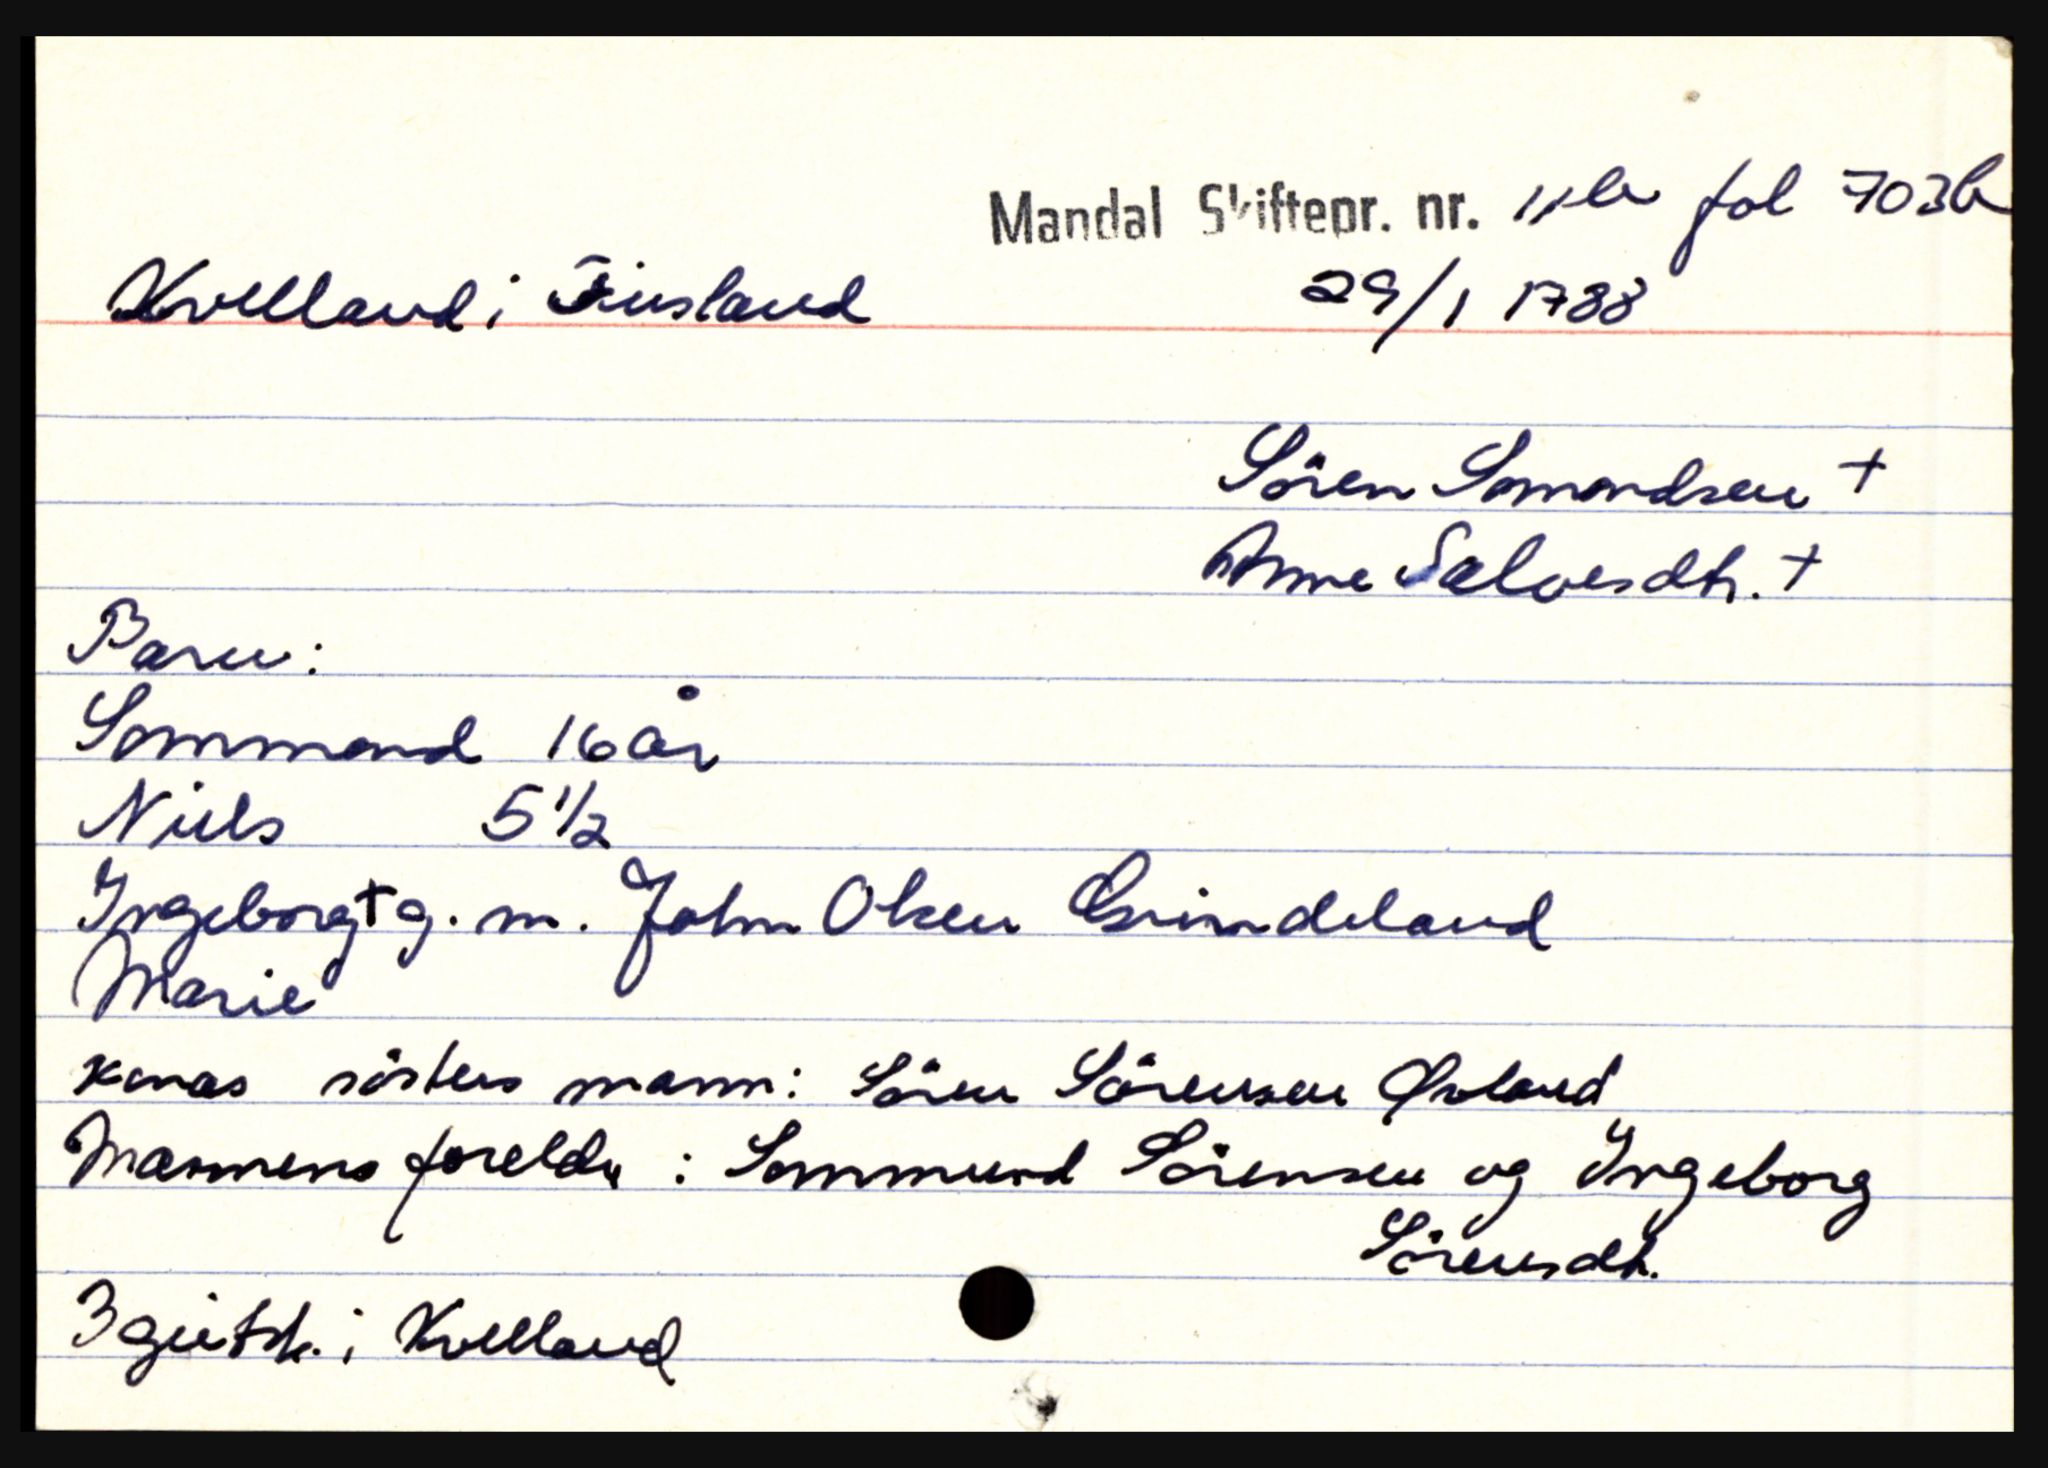 Mandal Skiftepr. nr. 11b fol 703b
Kvelland i Finsland 29/1 1788
Sören Somondsen +
Anne Salvesdtr. +
Barn:
Sommond 16 år
Niels 5 1/2
Ingeborg + g. m. John Olsen Grindeland
Marie
Konas sösters mann: Sören Sörensen Øvland
Mannens foreldre : Sommund Sörensen og Ingeborg
Sörensdtr.
3 g i Kvelland